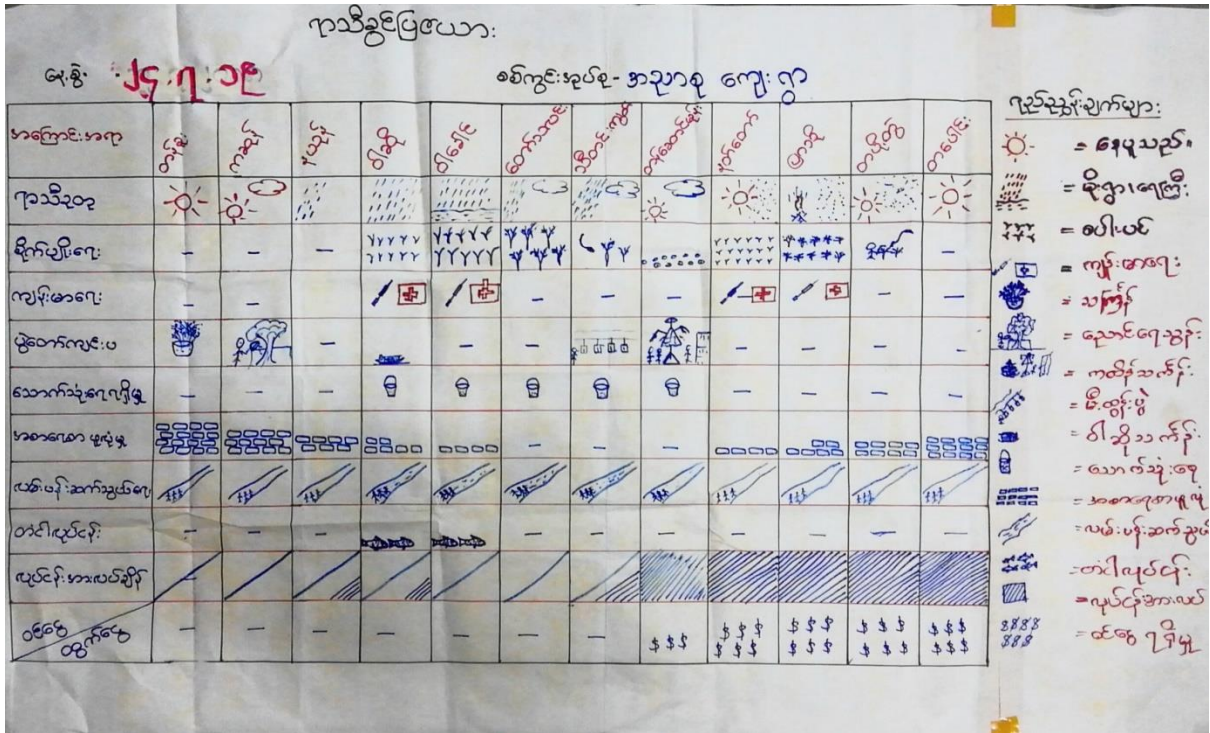 ရာသီခွင်ပြဇယား
နေ့စွဲ ၂၄.၇.၁၉
စစ်ကွင်းအုပ်စု - အညာစု ကျေးရွာ
အကြောင်းအရာ
တန်ခူး
ကဆုန်
နယုန်
ဝါဆို
ဝါခေါင်
တော်သလင်း
သီတင်းကျွတ်
တန်ဆောင်မုန်း
နတ်တော်
ပြာသို
တပို့တွဲ
တပေါင်း
ရာသီဥတု
စိုက်ပျိုးရေး
ကျန်းမာရေး
ပွဲတော်ကျင်းပ
သောက်သုံးရေရရှိမှု
အစားရေစာ ဖူလုံမှု
လမ်းပန်းဆက်သွယ်ရေး
တံငါလုပ်ငန်း
လုပ်ငန်းအားလပ်ချိန်
ဝင်ငွေ
ထွက်ငွေ
ရည်ညွှန်းချက်များ
= နေပူသည်။
= မိုးရွာ၊ ရေကြီး
= စပါးပင်
= ကျန်းမာရေး
= သင်္ကြန်
= ညောင်ရေသွန်း
= ကထိန်သင်္ကန်း
= မီးထွန်းပွဲ
= ဝါဆိုသင်္ကန်း
= သောက်သုံးရေ
= အစားရေစာဖူလုံ
= လမ်းပန်းဆက်သွယ်
= တံငါလုပ်ငန်း
= လုပ်ငန်းအားလပ်
= ဝင်ငွေ ရရှိမှု